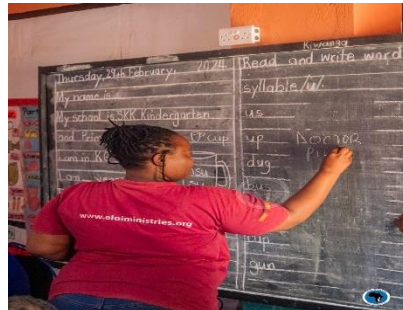 Thursday, 29th February, 2024
My name is
My school is SKK Kindergarten
and
I am in
I am
Kiwanga
Read and write word
syllable /u/.
us
up
dug
bus
cup
gun
DOCTOR
www.ofoiministries.org